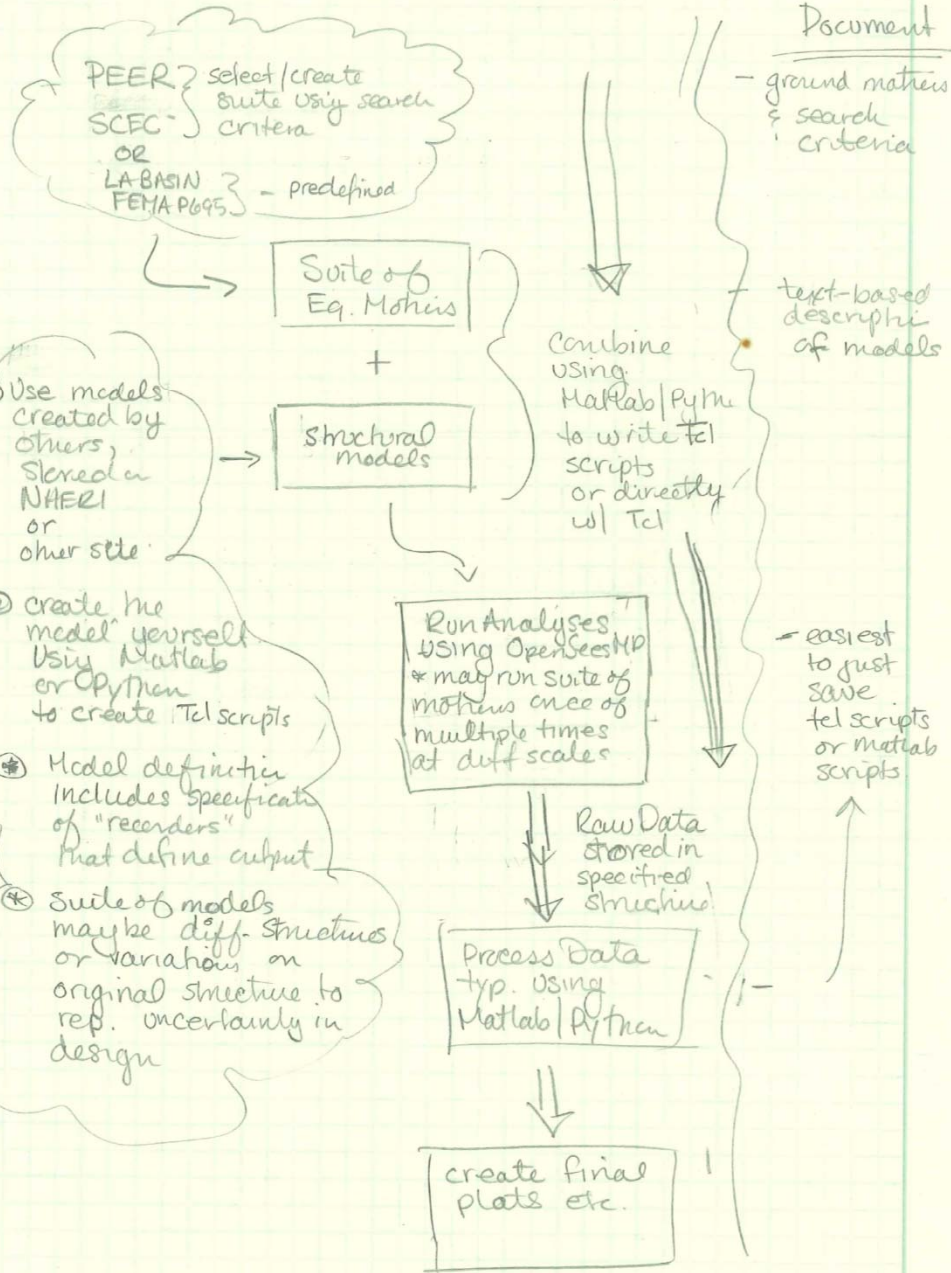 PEER
SCEC
OR
LA BASIN
FEMA P695
select/create
suite using search
criteria
- predefined
Suite of
Eq. Motions
+
structural
models
Use models
created by
others,
stored in
NHERI
or
other site
create the
model yourself
Using Matlab
or Python
to create Tcl scripts
Model definition
includes specificati
of "recorders"
that define output
Suite of models
maybe diff. structures
or variations on
original structure to
rep. uncertainty in
design
combine
using
Matlab/Python
to write tcl
scripts
or directly
w/ Tcl
Run Analyses
using OpenSeesMP
* may run suite of
motions once of
multiple times
at diff scales
Raw Data
stored in
specified
structure
Process Data
typ. using
Matlab/Python
create final
plots etc.
Document
- ground motions
& search
criteria
- text-based
descripti
of models
- easiest
to just
save
tcl scripts
or matlab
scripts